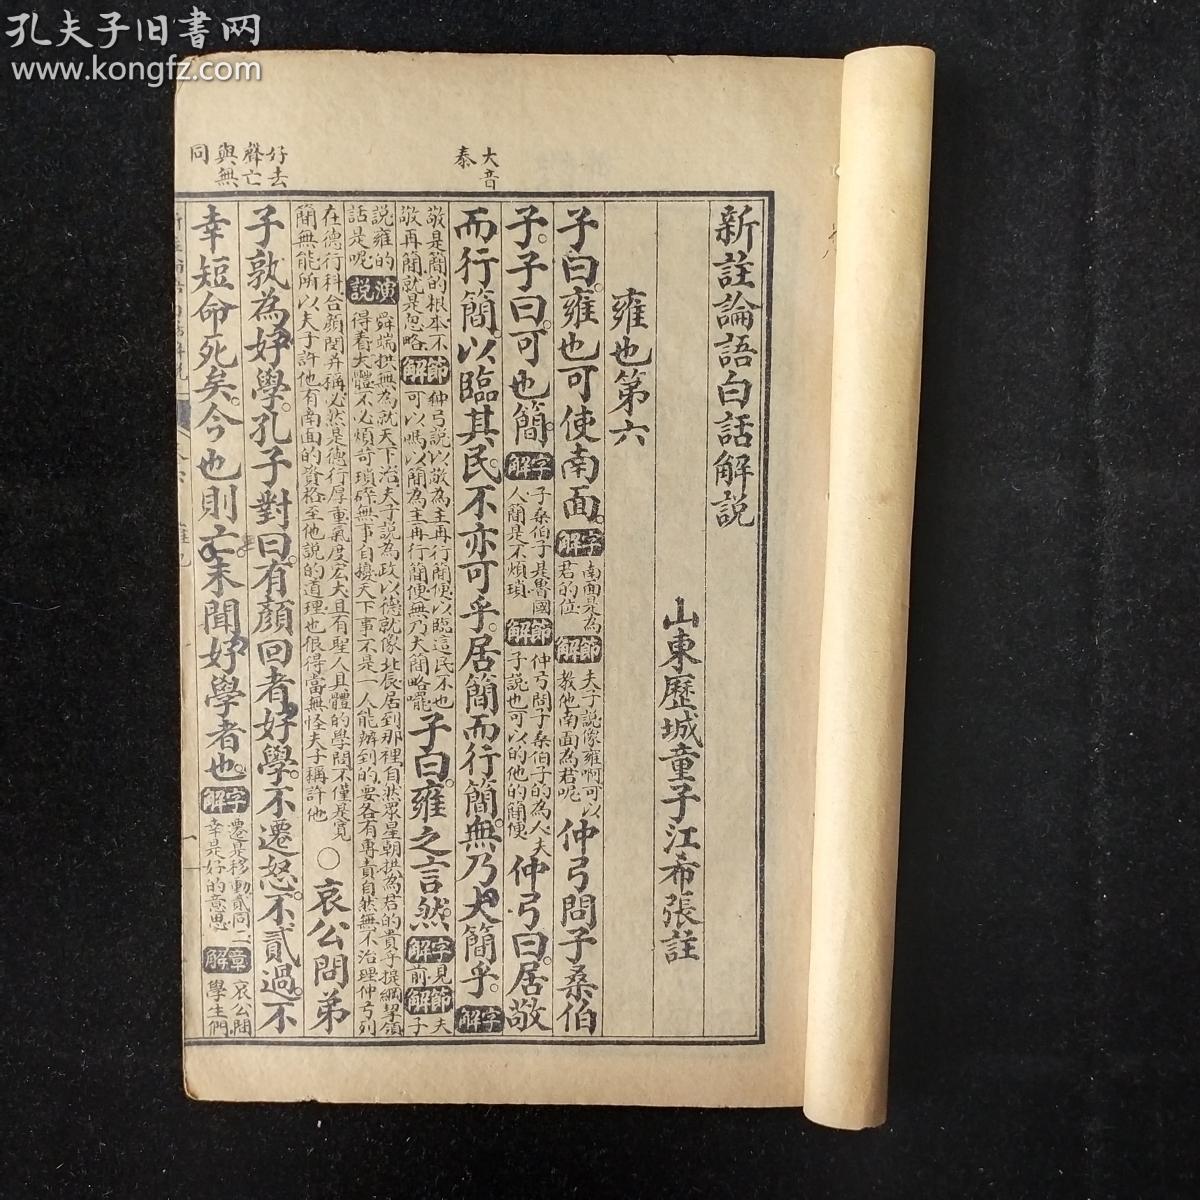 孔夫子旧书网
www.kongfz.com
大音
泰
好去
聲亡
與無
同
新註論語白話解説
山東歷城童子江希張註
雍也第六
子曰。雍也可使南面。字解南面是為君的位節解夫子説像雍啊可以教他南面為君呢仲弓問子桑伯
子。子曰。可也簡。字解子桑伯子是魯國人簡是不煩瑣節解仲弓問子桑伯子的為人夫子説也可以的他的簡便仲弓曰。居敬
而行簡。以臨其民。不亦可乎。居簡而行簡。無乃大簡乎。字解
敬是簡的根本不敬再簡就是忽略節解仲弓説以敬為主再行簡便以臨這民不也可以嗎以簡為主再行簡便無乃大簡略囉子曰。雍之言然。字解見前節解夫子
説雍的話是呢演説舜端拱無為就天下治夫子説為政以德就像北辰居到那裡自然眾星朝拱為君的貴乎提綱挈領得着大體不必煩苛瑣碎無事自擾天下事不是一人能辦到的要各有專責自然無不治理仲弓列
在德行科合顏閔并稱必然是德行厚重氣度宏大且有聖人具體的學問不僅是寬簡無能所以夫子許他有南面的資格至他説的道理也很得當無怪夫子稱許他○哀公問弟
子孰為好學。孔子對曰。有顏回者好學。不遷怒。不貳過。不
幸短命死矣。今也則亡。未聞好學者也。字解遷是移動貳同二幸是好的意思章解哀公問學生們